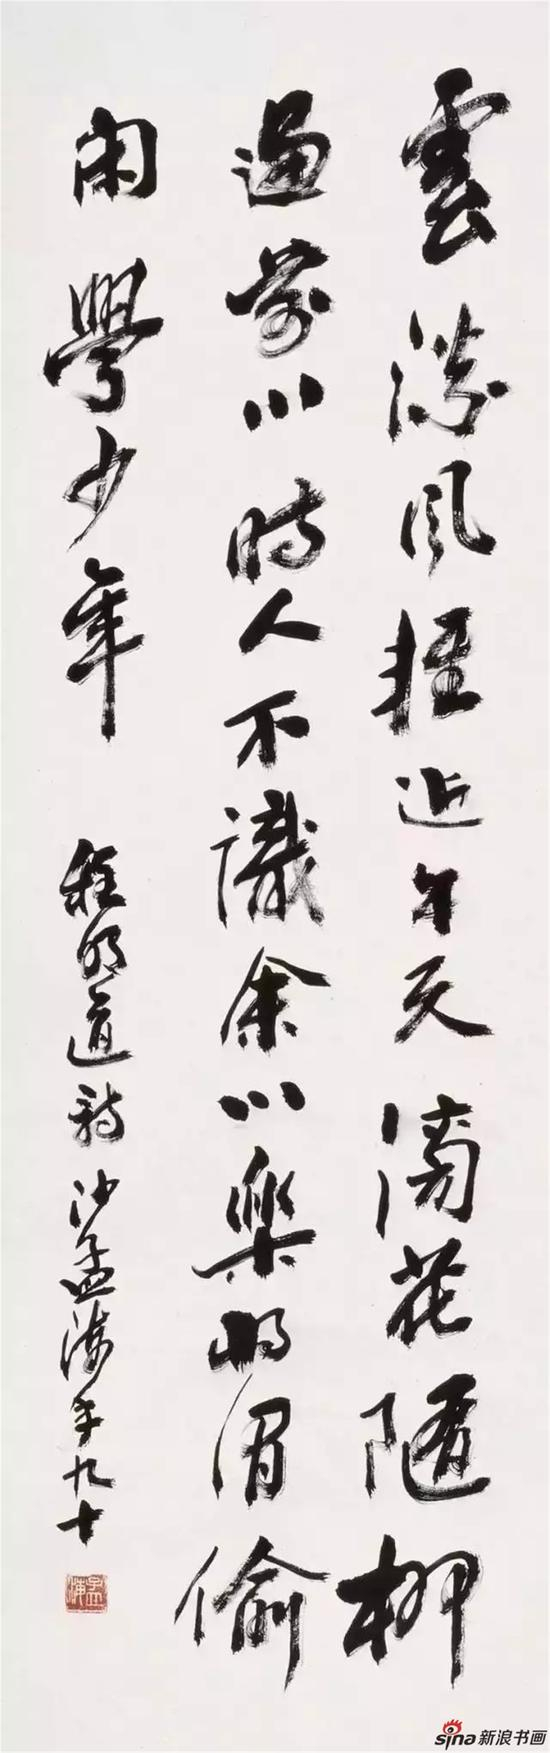 雲淡風輕近午天傍花隨柳
過前川時人不識余心樂將謂偷
閑學少年 程明道詩 沙孟海年九十
孟海
sina新浪书画